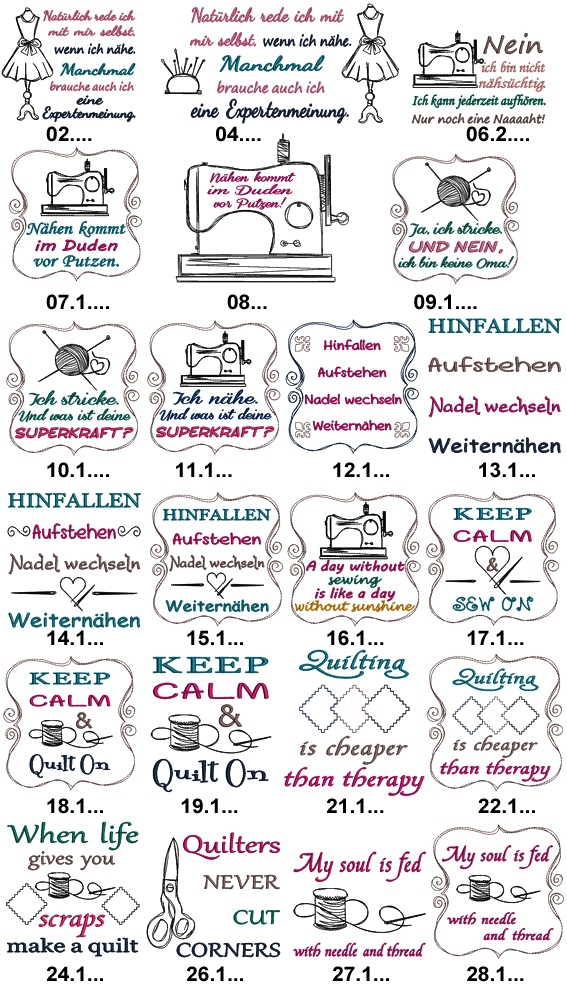 Natürlich rede ich mit
mir mit selbst.
wenn ich nähe.
Manchmal
brauche auch ich
eine
Expertenmeinung.
02....
Natürlich rede ich mit
mir selbst, wenn ich nähe.
Manchmal
brauche auch ich
eine Expertenmeinung.
04....
Nein
ich bin nicht
nähsüchtig.
Ich kann jederzeit aufhören.
Nur noch eine Naaaaht!
06.2....
Nähen kommt
im Duden
vor Putzen.
07.1....
Nähen kommt
im Duden
vor Putzen!
08...
Ja, ich stricke.
UND NEIN,
ich bin keine Oma!
09.1....
Ich stricke.
Und was ist deine
SUPERKRAFT?
10.1....
Ich nähe.
Und was ist deine
SUPERKRAFT?
11.1...
Hinfallen
Aufstehen
Nadel wechseln
Weiternähen
12.1...
HINFALLEN
Aufstehen
Nadel wechseln
Weiternähen
13.1...
HINFALLEN
Aufstehen
Nadel wechseln
Weiternähen
14.1...
HINFALLEN
Aufstehen
Nadel wechseln
Weiternähen
15.1...
A day without
sewing
is like a day
without sunshine
16.1...
KEEP
CALM
&
SEW ON
17.1...
KEEP
CALM
&
Quilt On
18.1...
KEEP
CALM
&
Quilt On
19.1...
Quilting
is cheaper
than therapy
21.1...
Quilting
is cheaper
than therapy
22.1...
When life
gives you
scraps
make a quilt
24.1...
Quilters
NEVER
CUT
CORNERS
26.1...
My soul is fed
with needle and thread
27.1...
My soul is fed
with needle
and thread
28.1...